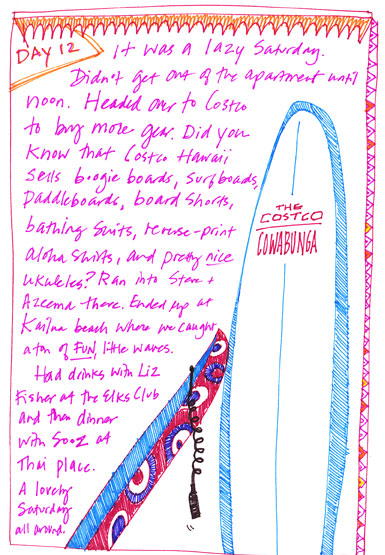 DAY 12
It was a lazy Saturday.
Didn't get out of the apartment until
noon. Headed over to Costco
to buy more gear. Did you
know that Costco Hawaii
sells boogie boards, surfboards,
paddleboards, board shorts,
bathing suits, reverse-print
aloha shirts, and pretty nice
ukuleles? Ran into Steve +
Azeema there. Ended up at
Kailua beach where we caught
a ton of FUN, little waves.
Had drinks with Liz
Fisher at the Elks Club
and then dinner
with Sooz at
Thai place.
A lovely
Saturday
all around.
THE
COSTCO
COWABUNGA